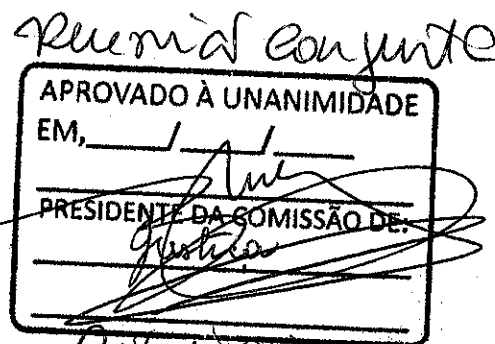 Reunião conjunta
APROVADO À UNANIMIDADE
EM,____/____/____
PRESIDENTE DA COMISSÃO DE:
Justiça